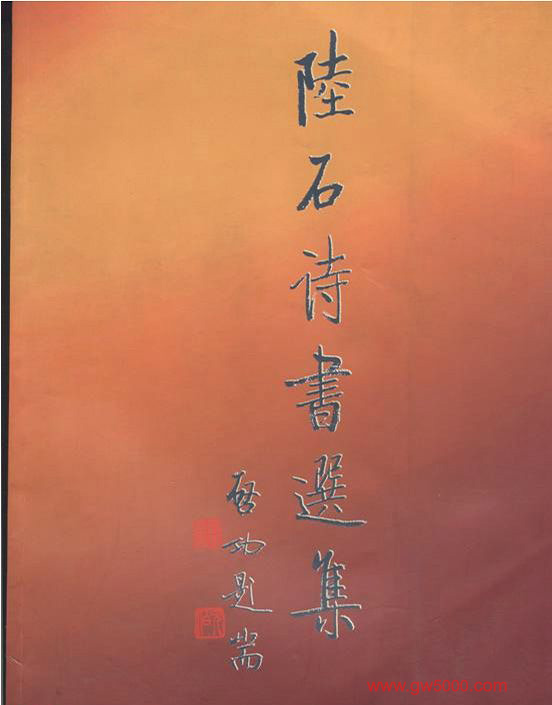 陸石诗書選集
啓功題耑
www.gw5000.com